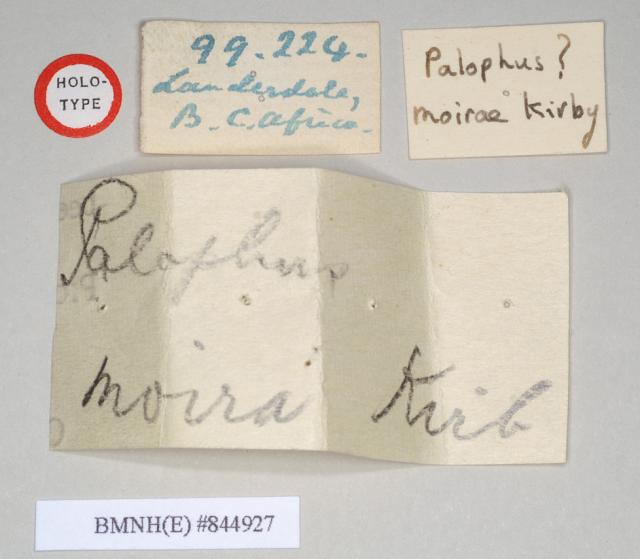 HOLO-
TYPE
99.224.
Lauderdale,
B.C. Africa.
Palophus?
moirae Kirby
Palophus
moira Kirb
BMNH(E) #844927